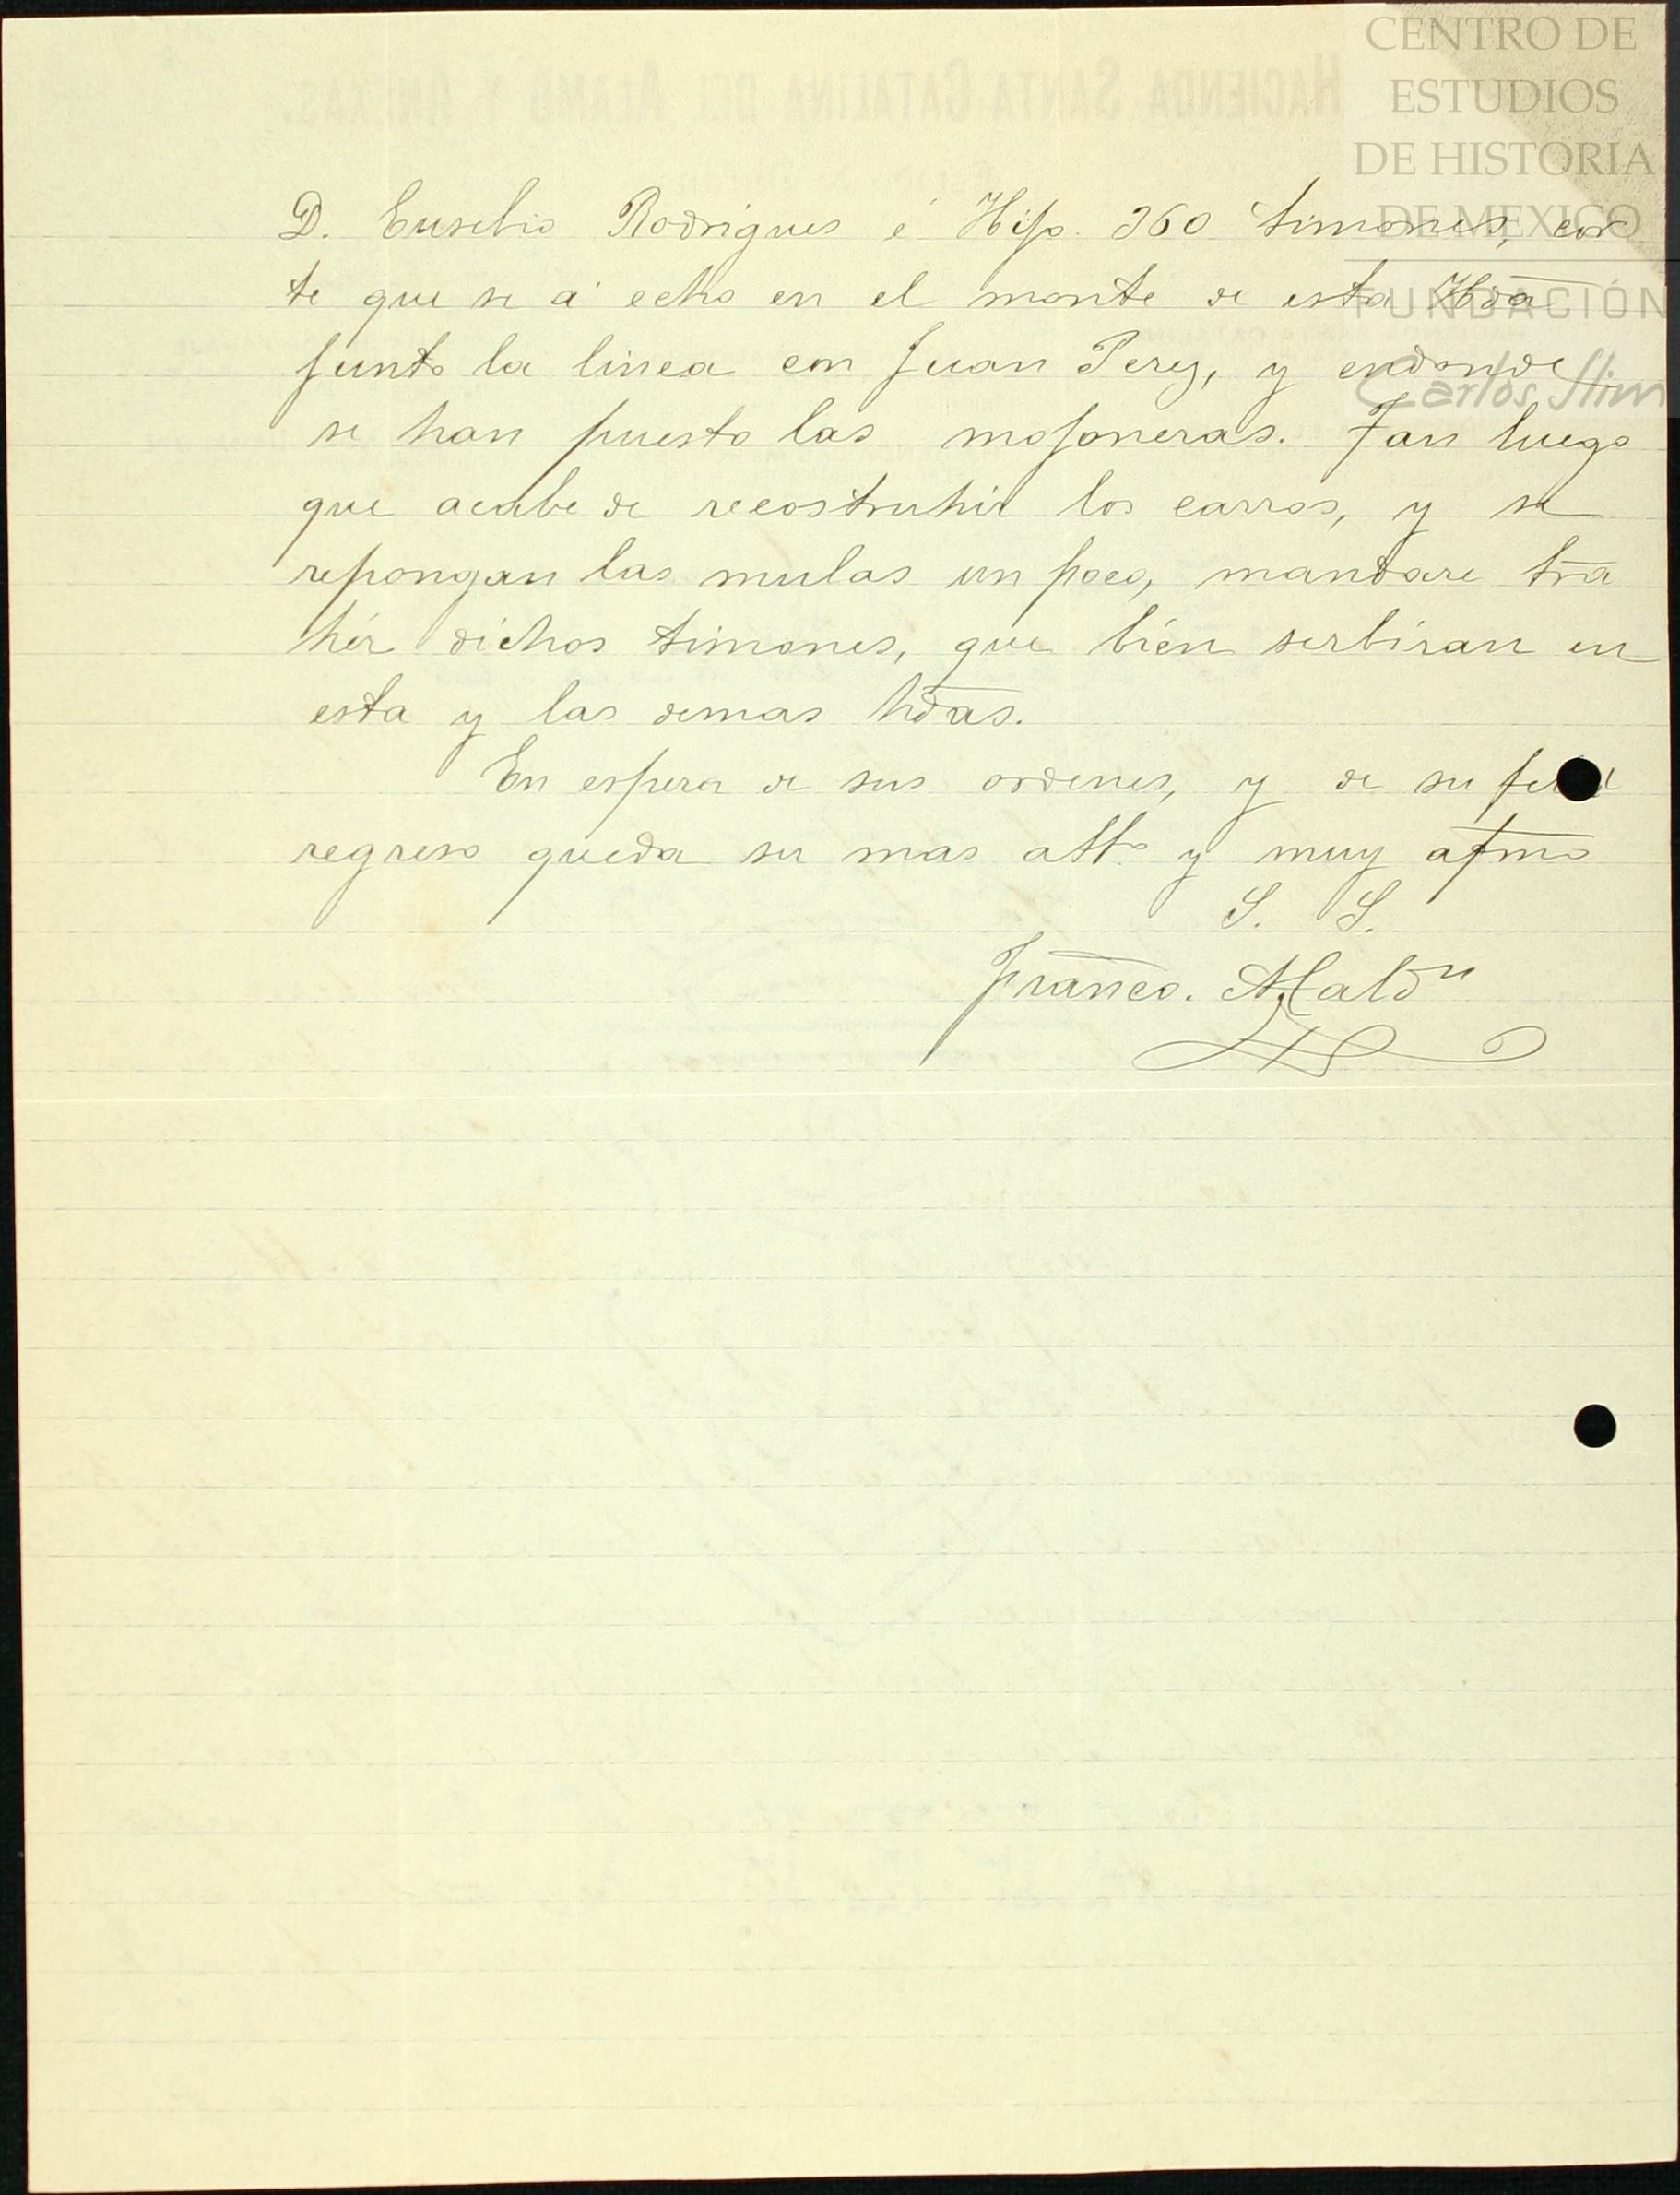 CENTRO DE
ESTUDIOS
DE HISTORIA
DE MEXICO
FUNDACIÓN
Carlos Slim
HACIENDA SANTA CATALINA DEL ALAMO Y ANEXAS.
D. Eusebio Rodrigues é Hijo. 360 timones, cor
te que se á echo en el monte de esta Hda
junto la linea con Juan Perez, y endonde
se han puesto las mojoneras. Tan luego
que acabe de recostruhir los carros, y se
repongan las mulas un poco, mandare tra
hér dichos timones, que bien serbiran en
esta y las demas hdas.
En espera de sus ordenes, y de su
regreso queda su mas atto y muy afmo
S. S.
Franco. Maldn